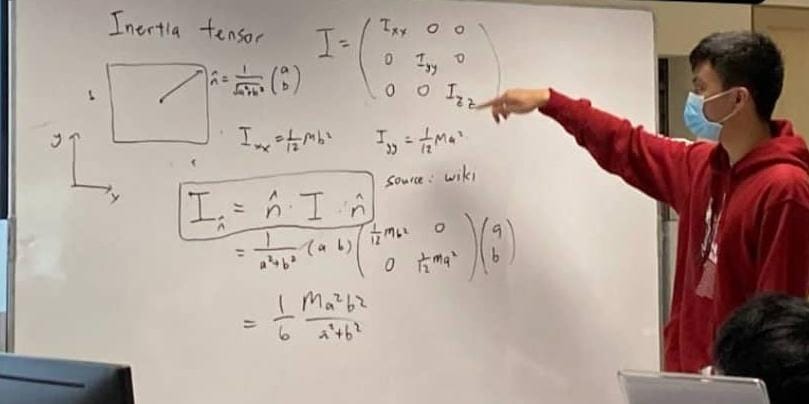 Inertia tensor
I = ( Ixx 0 0
0 Iyy 0
0 0 Izz )
b
n̂ = 1/√(a²+b²) (a b)
y
x
Ixx = 1/12 Mb²
Iyy = 1/12 Ma²
source: wiki
I_n̂ = n̂ · I · n̂
= 1/(a²+b²) (a b) ( 1/12 Mb² 0
0 1/12 Ma² ) (a b)
= 1/6 Ma²b²/(a²+b²)